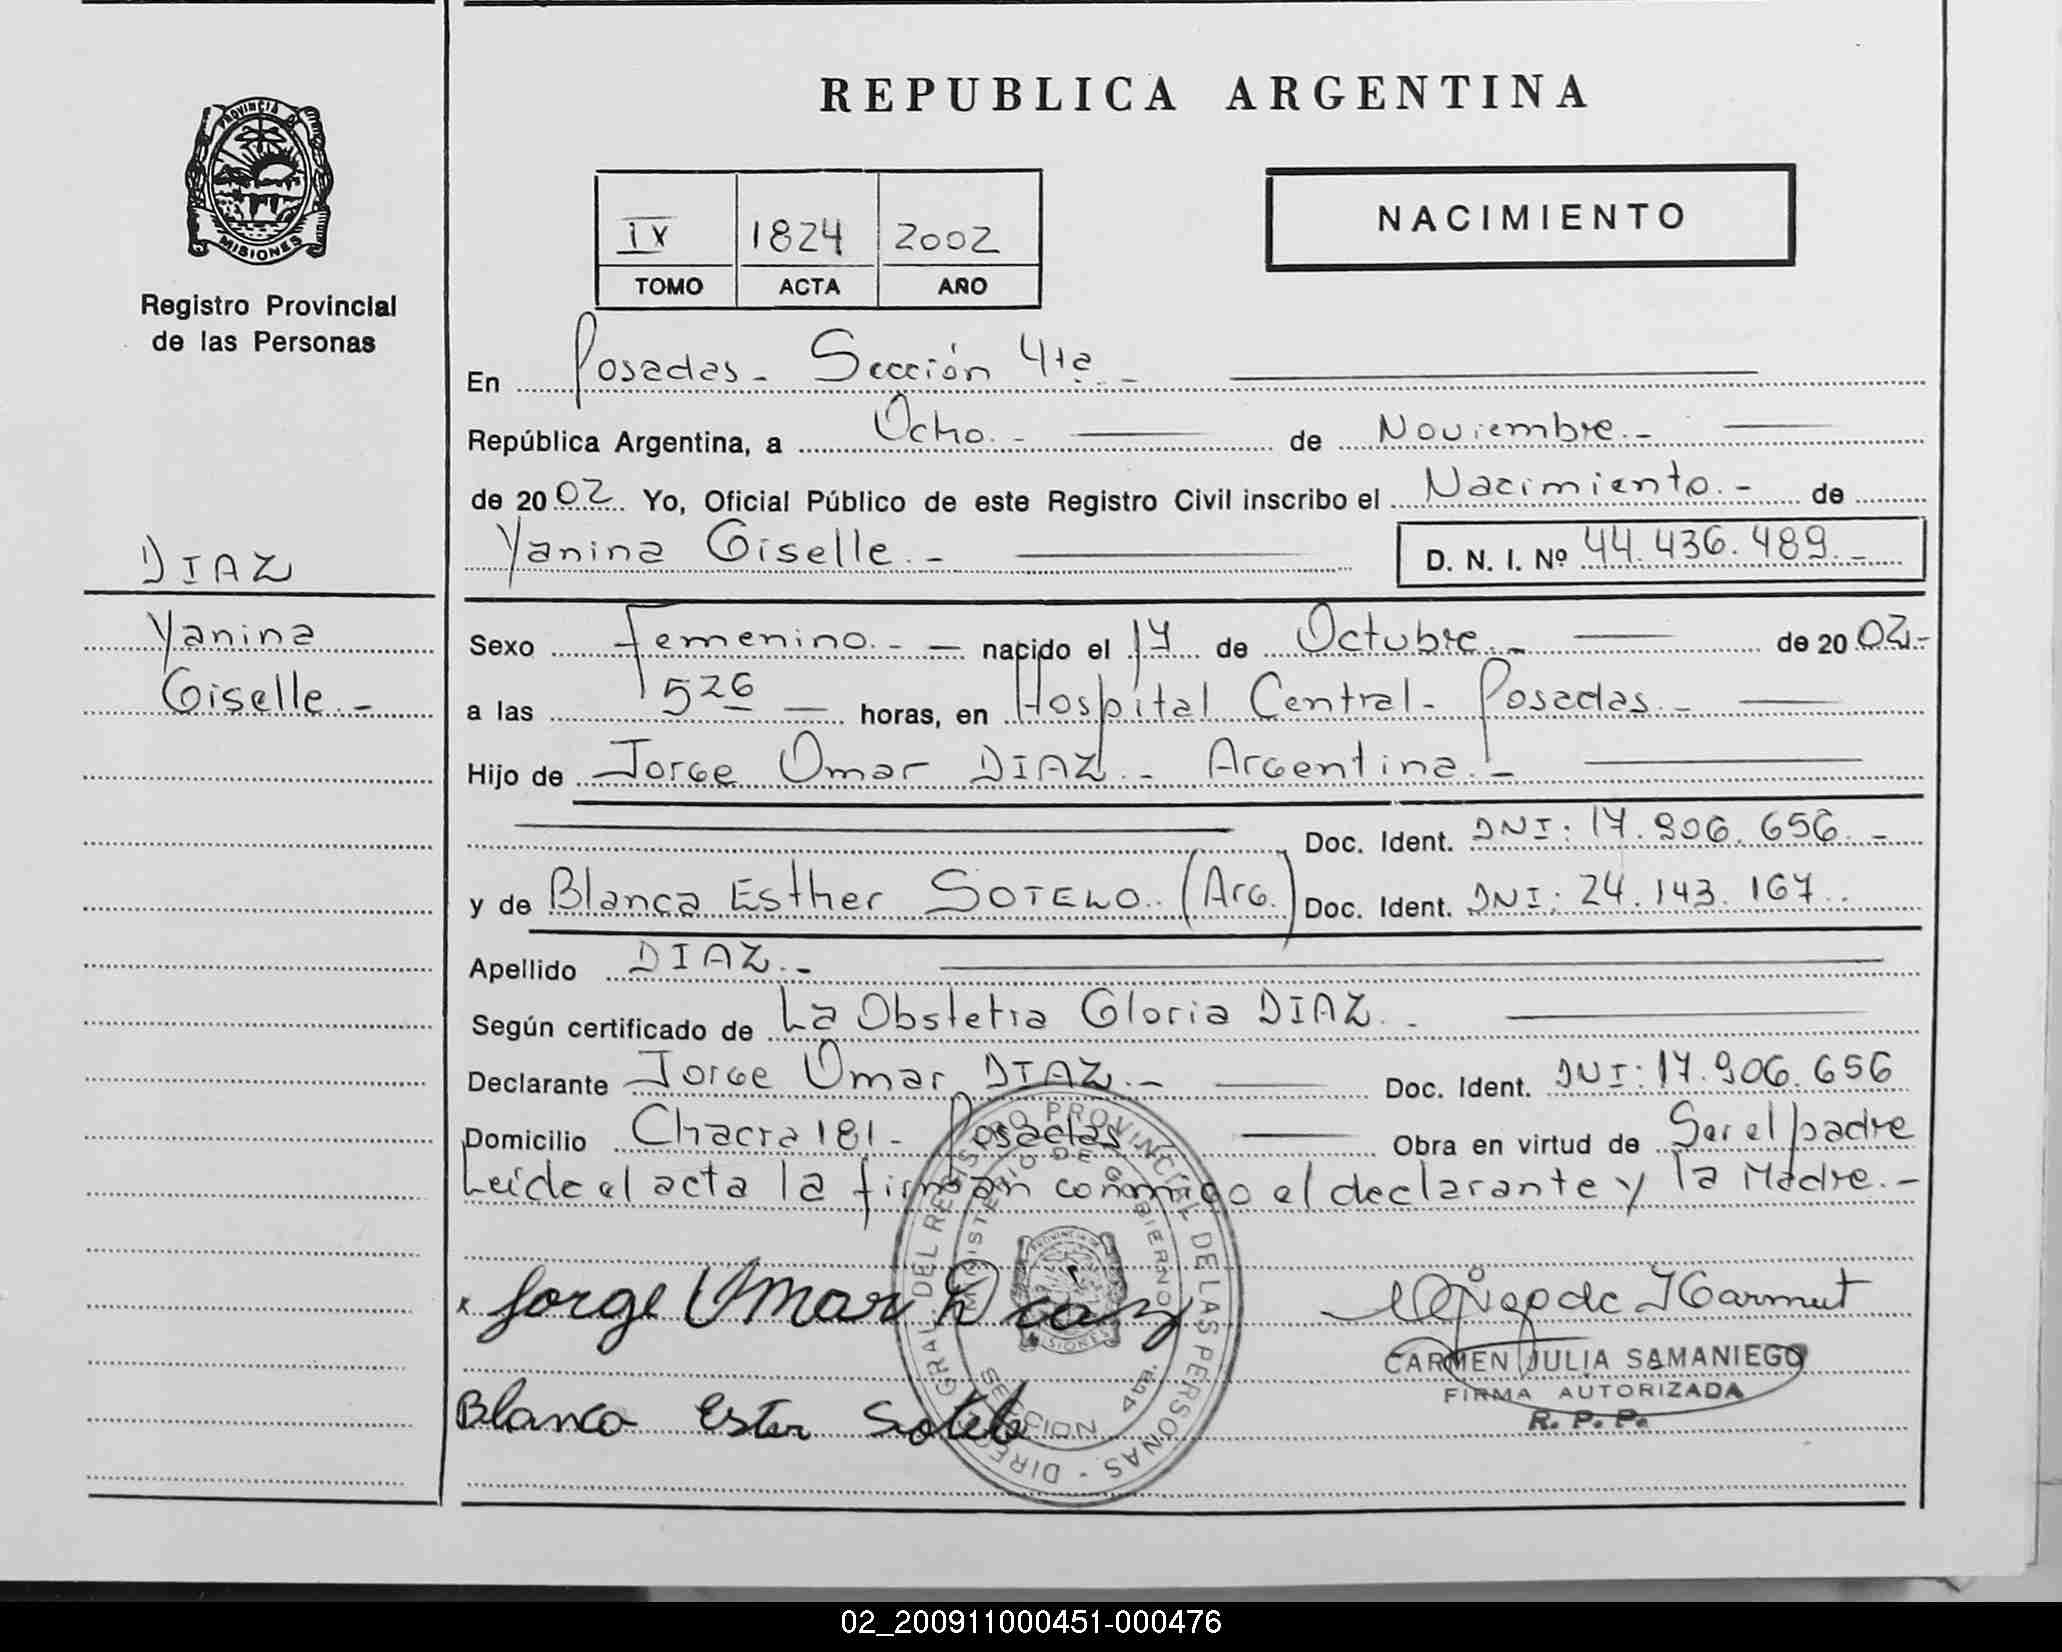 REPUBLICA ARGENTINA
PROVINCIA DE
MISIONES
Registro Provincial
de las Personas
IX 1824 2002
TOMO ACTA AÑO
NACIMIENTO
En Posadas - Sección 4ta -
República Argentina, a Ocho. - de Noviembre. -
de 2002 Yo, Oficial Público de este Registro Civil inscribo el Nacimiento. - de
Yanina Giselle. - D. N. I. Nº 44.436.489. -
DIAZ
Yanina
Giselle. -
Sexo Femenino. - - nacido el 17 de Octubre. - de 2002. -
a las 5 26 - horas, en Hospital Central - Posadas. -
Hijo de Jorge Omar DIAZ. - Argentina. -
Doc. Ident. DNI: 17.906.656. -
y de Blanca Esther SOTELO. (Arg.) Doc. Ident. DNI: 24.143.167.
Apellido DIAZ. -
Según certificado de La Obstetra Gloria DIAZ. -
Declarante Jorge Omar DIAZ. - Doc. Ident. DNI: 17.906.656
Domicilio Chacra 181 - Posadas Obra en virtud de Ser el padre
Leída el acta la firman conmigo el declarante y la Madre. -
DIRECCION GRAL. DEL REGISTRO PROVINCIAL DE LAS PERSONAS -
MINISTERIO DE GOBIERNO
SECCION 4ta.
x Jorge Omar Diaz
CARMEN JULIA SAMANIEGO
FIRMA AUTORIZADA
R. P. P.
Blanca Ester Sotelo
02_200911000451-000476